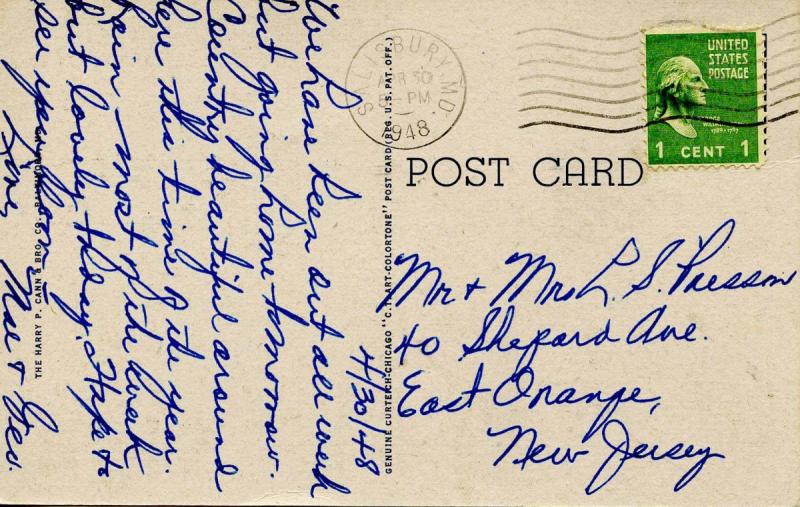 4/30/48
We have been out all week
but going home tomorrow.
Country beautiful around
here this time of the year.
Rain most of the week
but lovely today. Hope to
see you soon.
Love,
Mae & Geo.
THE HARRY P. CANN & BRO. CO., BALTIMORE
GENUINE CURTEICH-CHICAGO "C.T. ART-COLORTONE" POST CARD (REG. U.S. PAT. OFF.)
SALISBURY, MD.
APR 30
PM
1948
UNITED
STATES
POSTAGE
1789-1797
1 CENT 1
POST CARD
Mr + Mrs L. S. Presson
40 Shepard Ave.
East Orange,
New Jersey